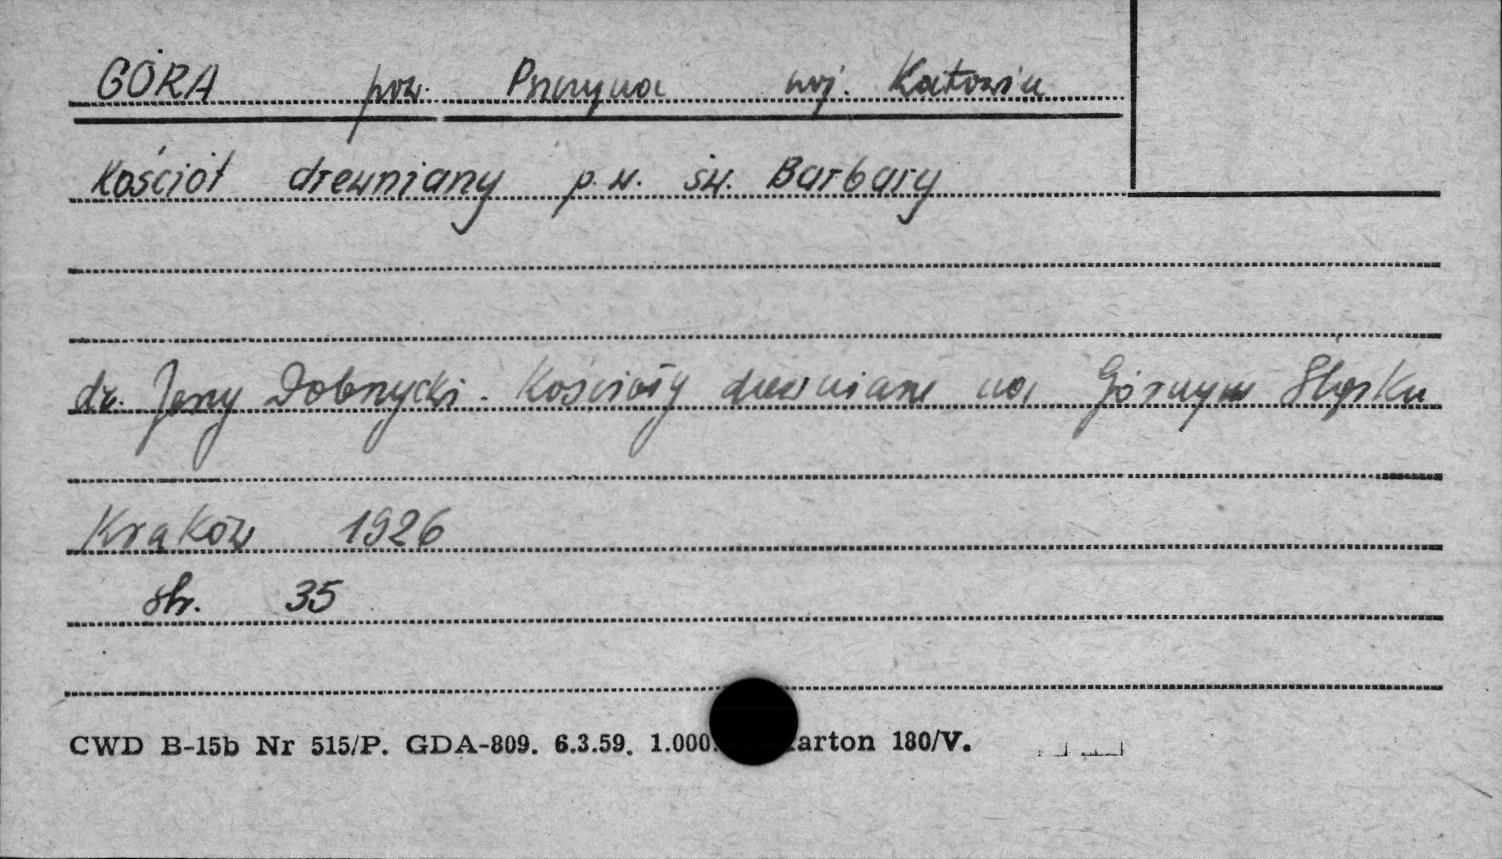 GÓRA pow. Pszczyna woj. Katowice
Kościół drewniany p.w. św. Barbary
dr. Jerzy Dobrzycki - Kościoły drewniane na Górnym Śląsku
Kraków 1926
str. 35
CWD B-15b Nr 515/P. GDA-809. 6.3.59. 1.000. arton 180/V.